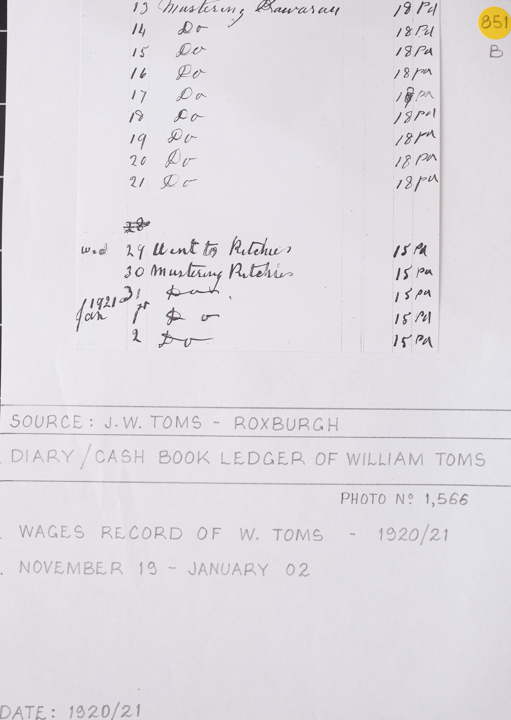 13 Mustering Kawarau 18 Pd
851
14 Do 18 Pd
B
15 Do 18 Pd
16 Do 18 pd
17 Do 18 pd
18 Do 18 pd
19 Do 18 pd
20 Do 18 pd
21 Do 18 pd
28
wed 29 Went to Ritchies 15 Pd
30 Mustering Ritchies 15 pd
31 Do 15 pd
1921
Jan 1 Do 15 Pd
2 Do 15 Pd
SOURCE: J.W. TOMS - ROXBURGH
DIARY/CASH BOOK LEDGER OF WILLIAM TOMS
PHOTO Nº 1,566
. WAGES RECORD OF W. TOMS - 1920/21
. NOVEMBER 19 - JANUARY 02
DATE: 1920/21